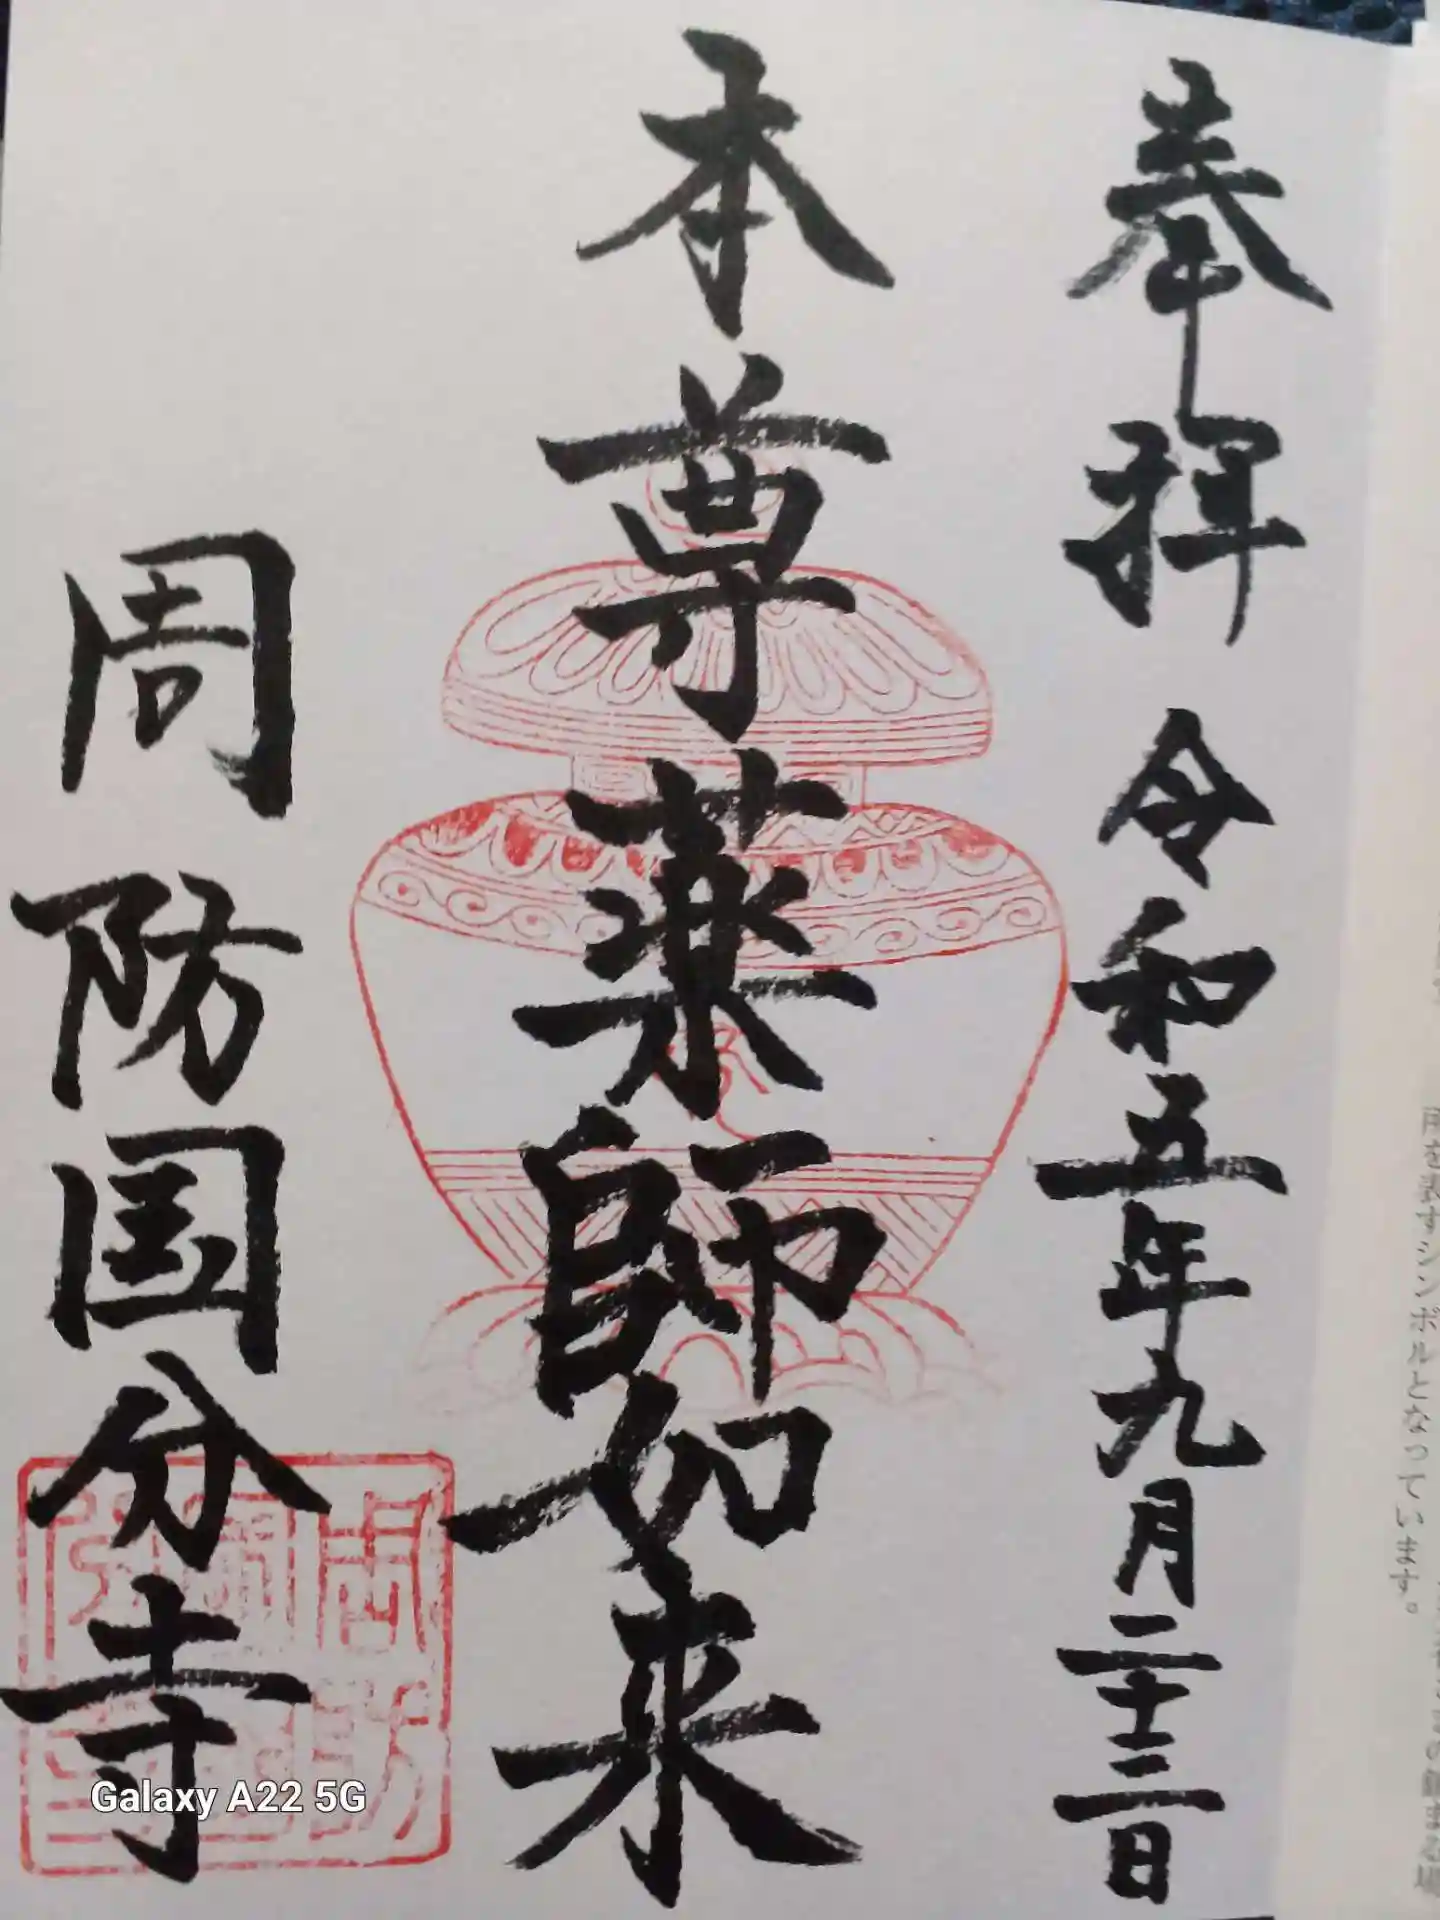 奉拝 令和五年九月二十三日
本尊薬師如来
周防国分寺
所を表すシンボルとなっています。
Galaxy A22 5G